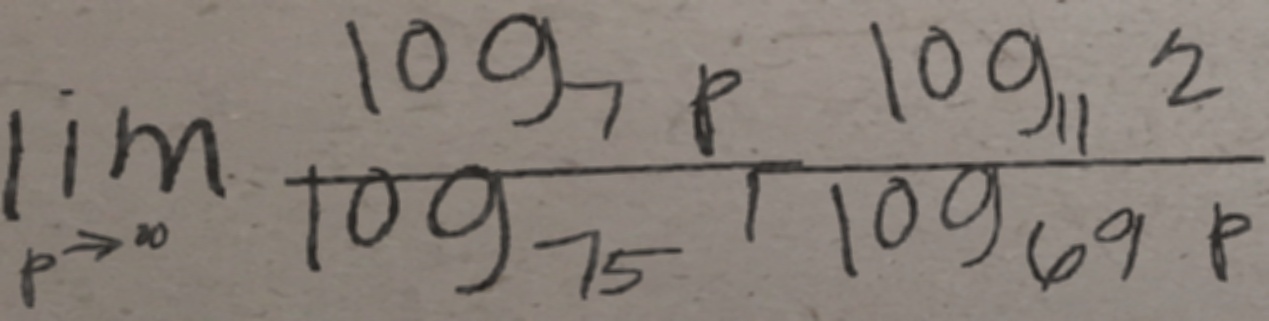 \lim_{p \to \infty} \frac{\log_7 p \log_{11} 2}{\log_{75} 1 \log_{69} p}